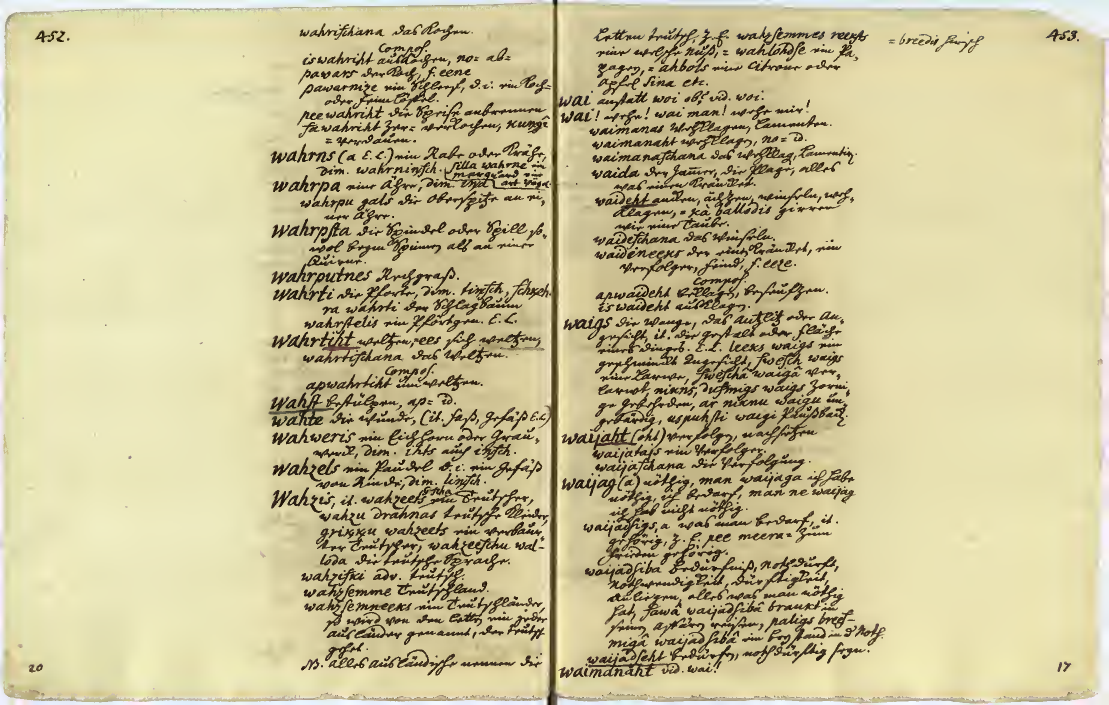 452.
wahrischana das Kochen.
Compos.
iswahriht auskochen, no= ab=
pawars der Koch, f. eene
pawarnize ein Schleef, d. i. ein Koch=
oder Feimlöffel.
peewahriht die Speise anbrennen
sawahriht zer= verkochen, kungî
= verdauen.
wahrns (a E. L.) ein Rabe oder Krähe,
dim. wahrninsch. silla wahrne ein
wahrpa eine Ähre, dim.
wahrpu gals die Oberspitze an ei,
ner Ähre.
wahrpsta die Spindel oder Spill so,
wol beym Spinnen als an einer
wahrputnes Rechgraß.
wahrti die Pforte, dim. tinsch, schkeh=
ra wahrti der Schlagbaum
wahrstelis ein Pförtgen. E. L.
wahrtiht weltzen, =ees sich weltzen,
wahrtischana das Weltzen.
Compos.
apwahrtiht umweltzen.
Wahst besülgen, ap= id.
wahte die Wunde, (it. Faß, Gefäß E. L.)
wahweris ein Eichhorn oder Grau,
werck, dim. ihts auch insch.
wahzels ein Paudel d. i. ein Gefäß
von Rinde, dim. linsch.
Wahzis, it. wahzeets ein Teutscher,
wahzu drahnas teutsche Kleider,
grikku wahzeets ein verbaur,
ter Teutscher, wahzeeschu wal=
loda die teutsche Sprache.
wahziski adv. teutsch.
wahzsemme Teutschland.
wahzsemneeks ein Teutschländer,
so wird von den Letten ein jeder
ausländer genannt, der teutsch
gehet.
NB. alles ausländische nennen die
20
453.
Letten teutsch, z. E. wahzsemmes reeksts
eine welsche Nuß, = wahlohdse ein Pa,
pagey, = ahbols eine Citrone oder
Apfel Sina etc.
= breedis
wai anstatt woi ob? vid. woi.
wai! wehe! wai man! wehe mir!
waimanas Wehklagen, Lamenten.
waimanaht wehklagen, no= id.
waimanaschana das Wehklagen, Lamentiren.
waida der Jammer, die Klage, alles
was einen kräncket.
waideht anken, ächzen, winseln, weh,
klagen, = kà ballodis girren
wie eine Taube.
waideschana das Winseln.
waideneeks der eins kräncket, ein
Verfolger, Feind, f. eeze.
Compos.
apwaideht beklagen, beseufzen.
iswaideht ausklagen.
waigs die Wange, das Antlitz oder An,
gesicht, it. die gestalt oder Fläche
eines dinges. E. L. leeks waigs ein
geschminckt Angesicht, swesch waigs
eine Larve, sweschâ waigâ ver,
larvt, nikns, dusmigs waigs zorni,
ge Geberden, ar niknu waigu un,
gebärdig, uspuhsti waigi Plußback.
waijaht (oht) verfolgen, nachsetzen
waijatajs ein Verfolger.
waijaschana die Verfolgung.
waijag (a) nöthig, man waijaga ich habe
nöthig, ich bedarf, man ne waijag
ich hab nicht nöthig.
waijadsigs, a was man bedarf, it.
gehörig, z. E. pee meera= zum
Frieden gehörig.
waijadsiba Bedürfniß, Nothdurft,
Nothwendigkeit, Dürftigkeit,
Anliegen, alles was man nöthig
hat, sawâ waijadsibâ braukt in
seinen reisen, paligs brees=
migâ waijadsibâ ein Beystand in d' Noth.
waijadseht bedürfen, nothdürftig seyn.
waimanaht vid. wai!
17